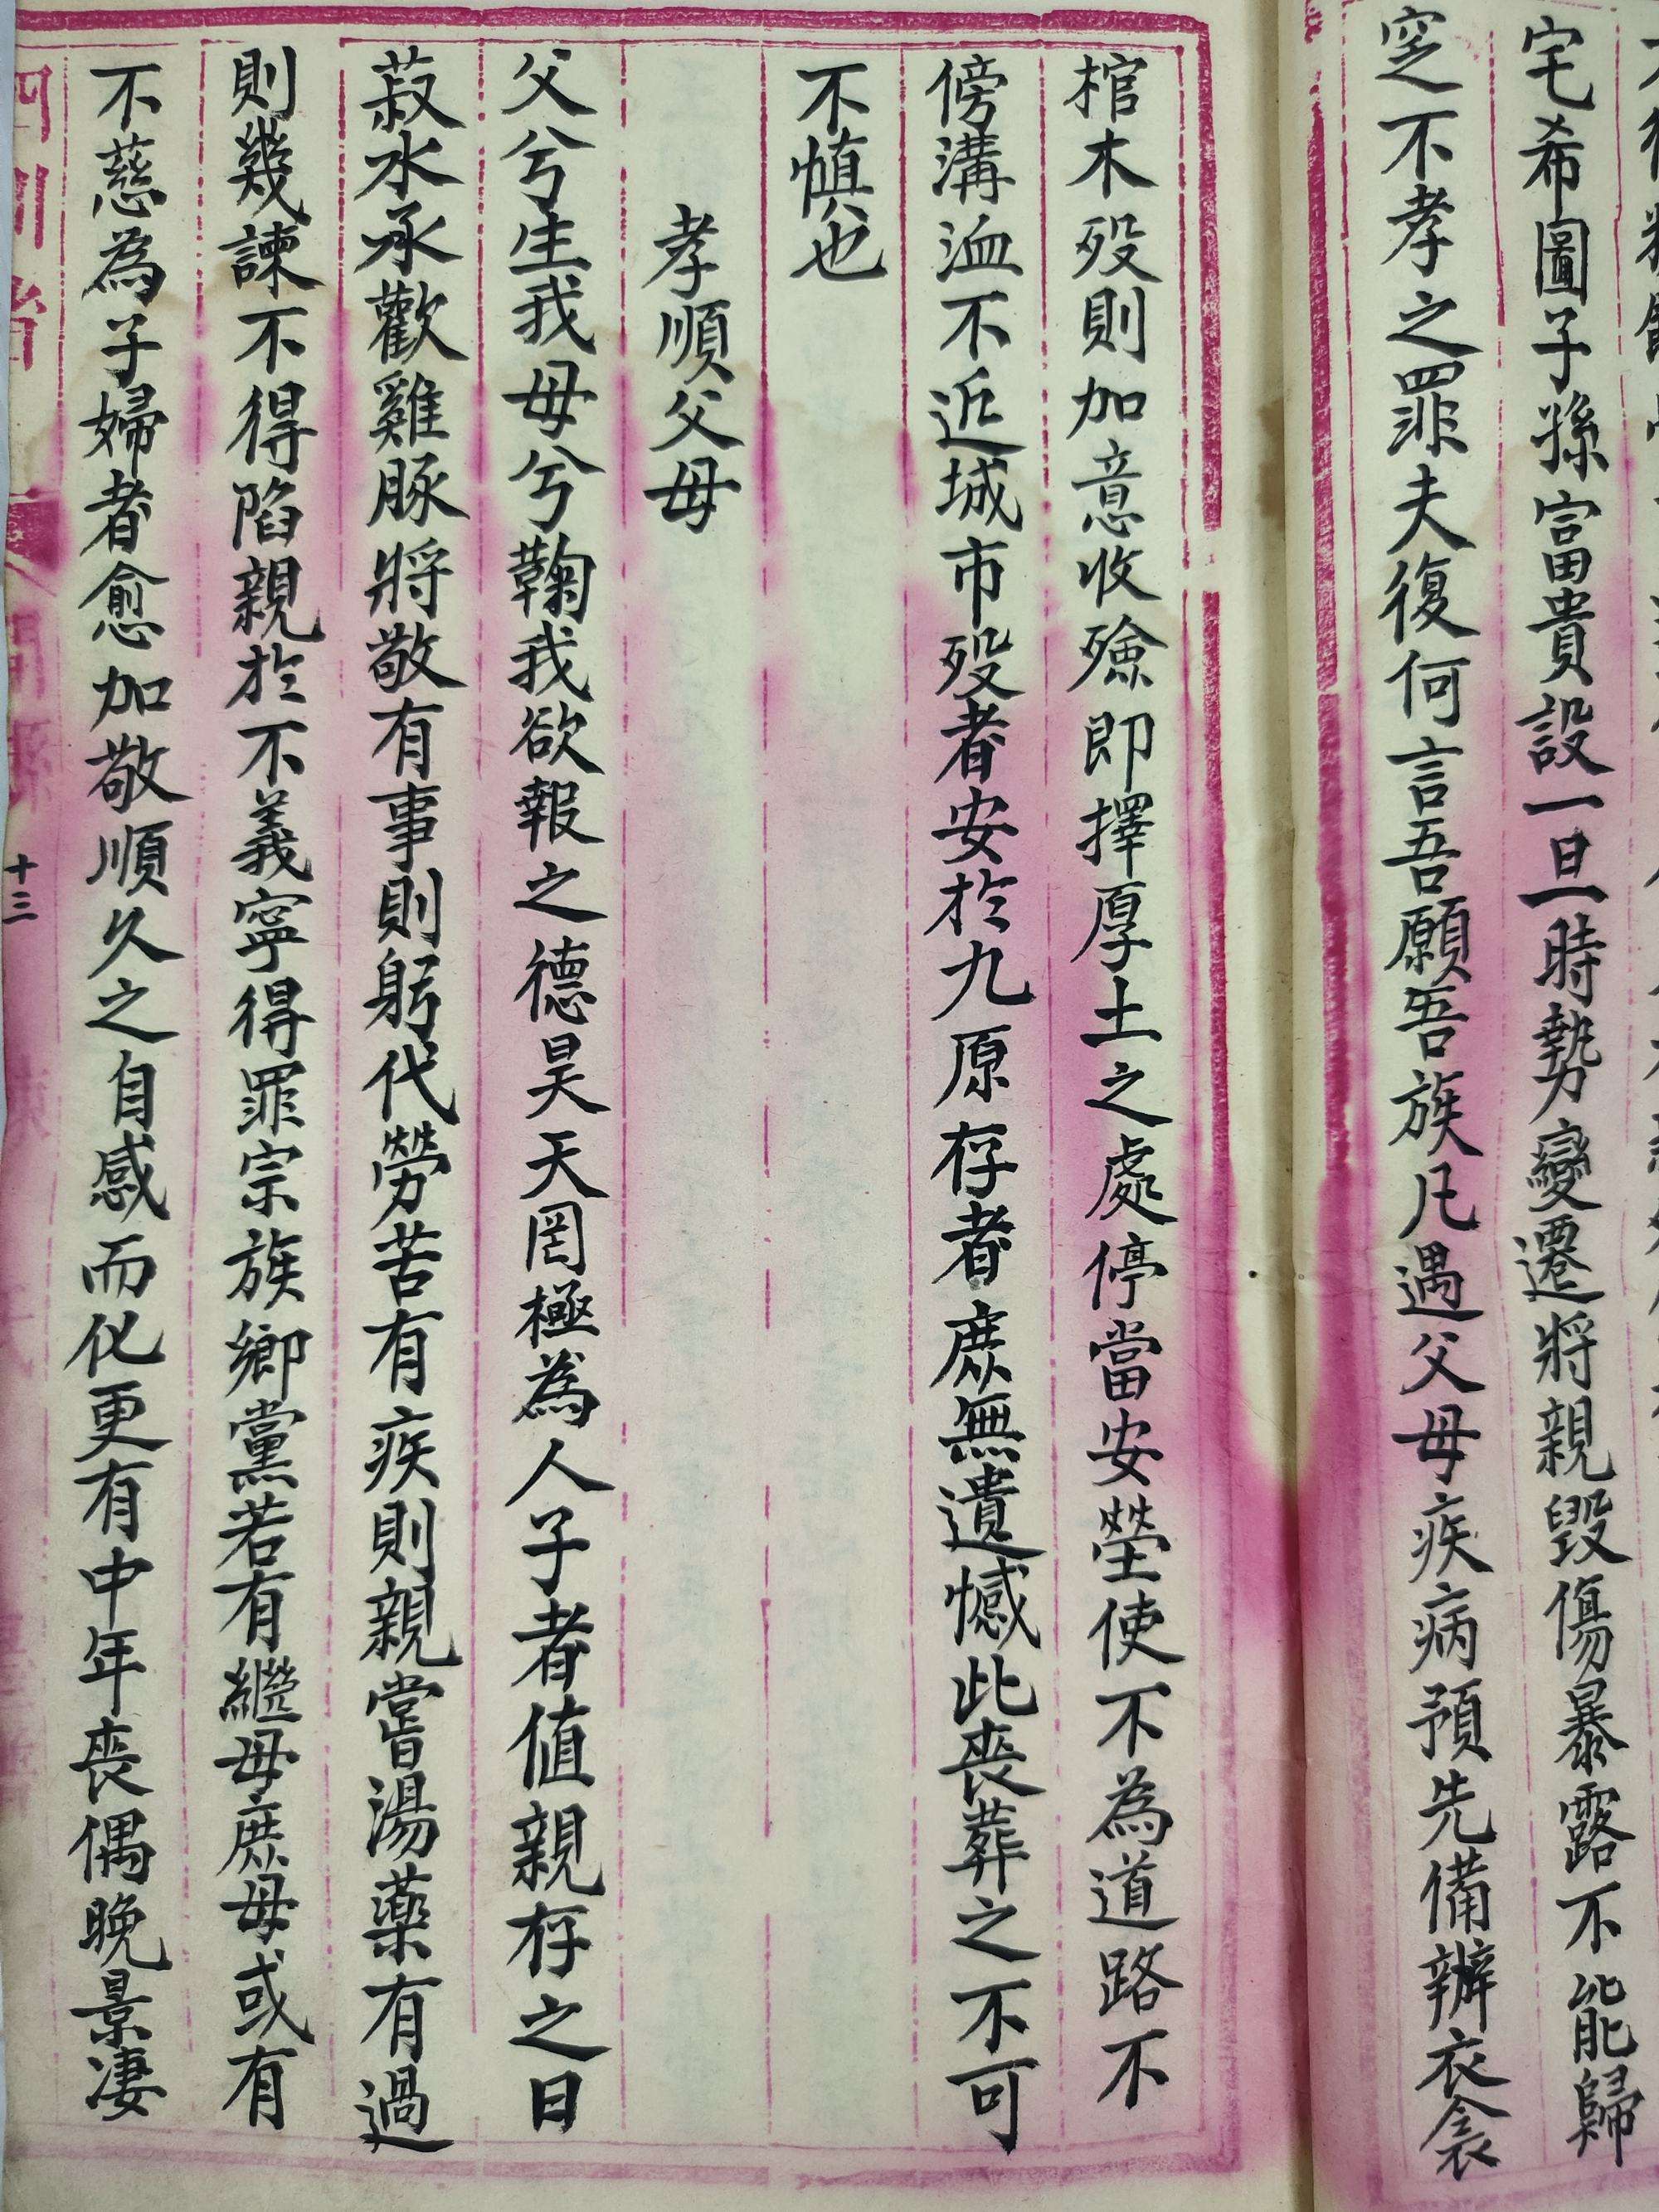 宅希圖子孫富貴設一旦時勢變遷將親毀傷暴露不能歸
窆不孝之罪夫復何言吾願吾族凡遇父母疾病預先備辦衣衾
棺木歿則加意收殮即擇厚土之處停當安塋使不為道路不
傍溝洫不近城市歿者安於九原存者庶無遺憾此喪葬之不可
不慎也
孝順父母
父兮生我母兮鞠我欲報之德昊天罔極為人子者值親存之日
菽水承歡雞豚將敬有事則躬代勞苦有疾則親嘗湯藥有過
則幾諫不得陷親於不義寧得罪宗族鄉黨若有繼母庶母或有
不慈為子婦者愈加敬順久之自感而化更有中年喪偶晚景淒
十三